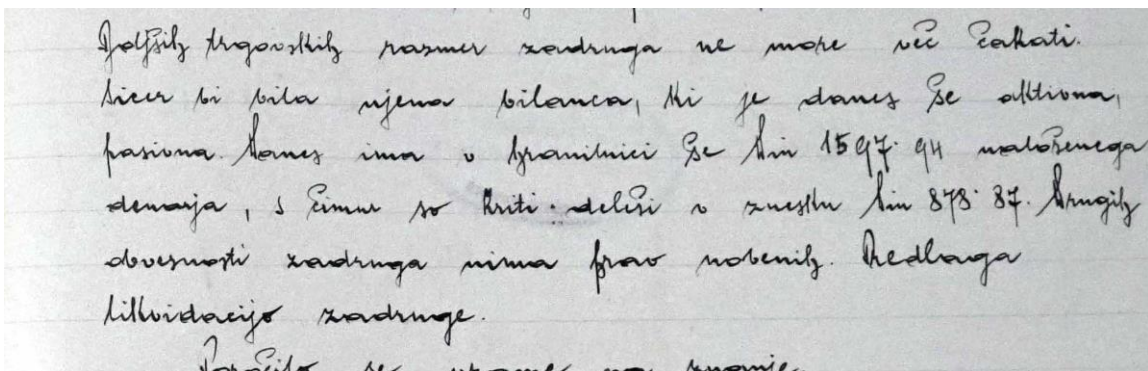 Boljših trgovskih razmer zadruga ne more več čakati.
Sicer bi bila njena bilanca, ki je danes še aktivna,
pasivna. Danes ima v hranilnici še Din 1597·94 naloženega
denarja, s čimur so kriti deleži v znesku Din 878·87. Drugih
obveznosti zadruga nima prav nobenih. Predlaga
likvidacijo zadruge.
Poročilo se vzame na znanje.